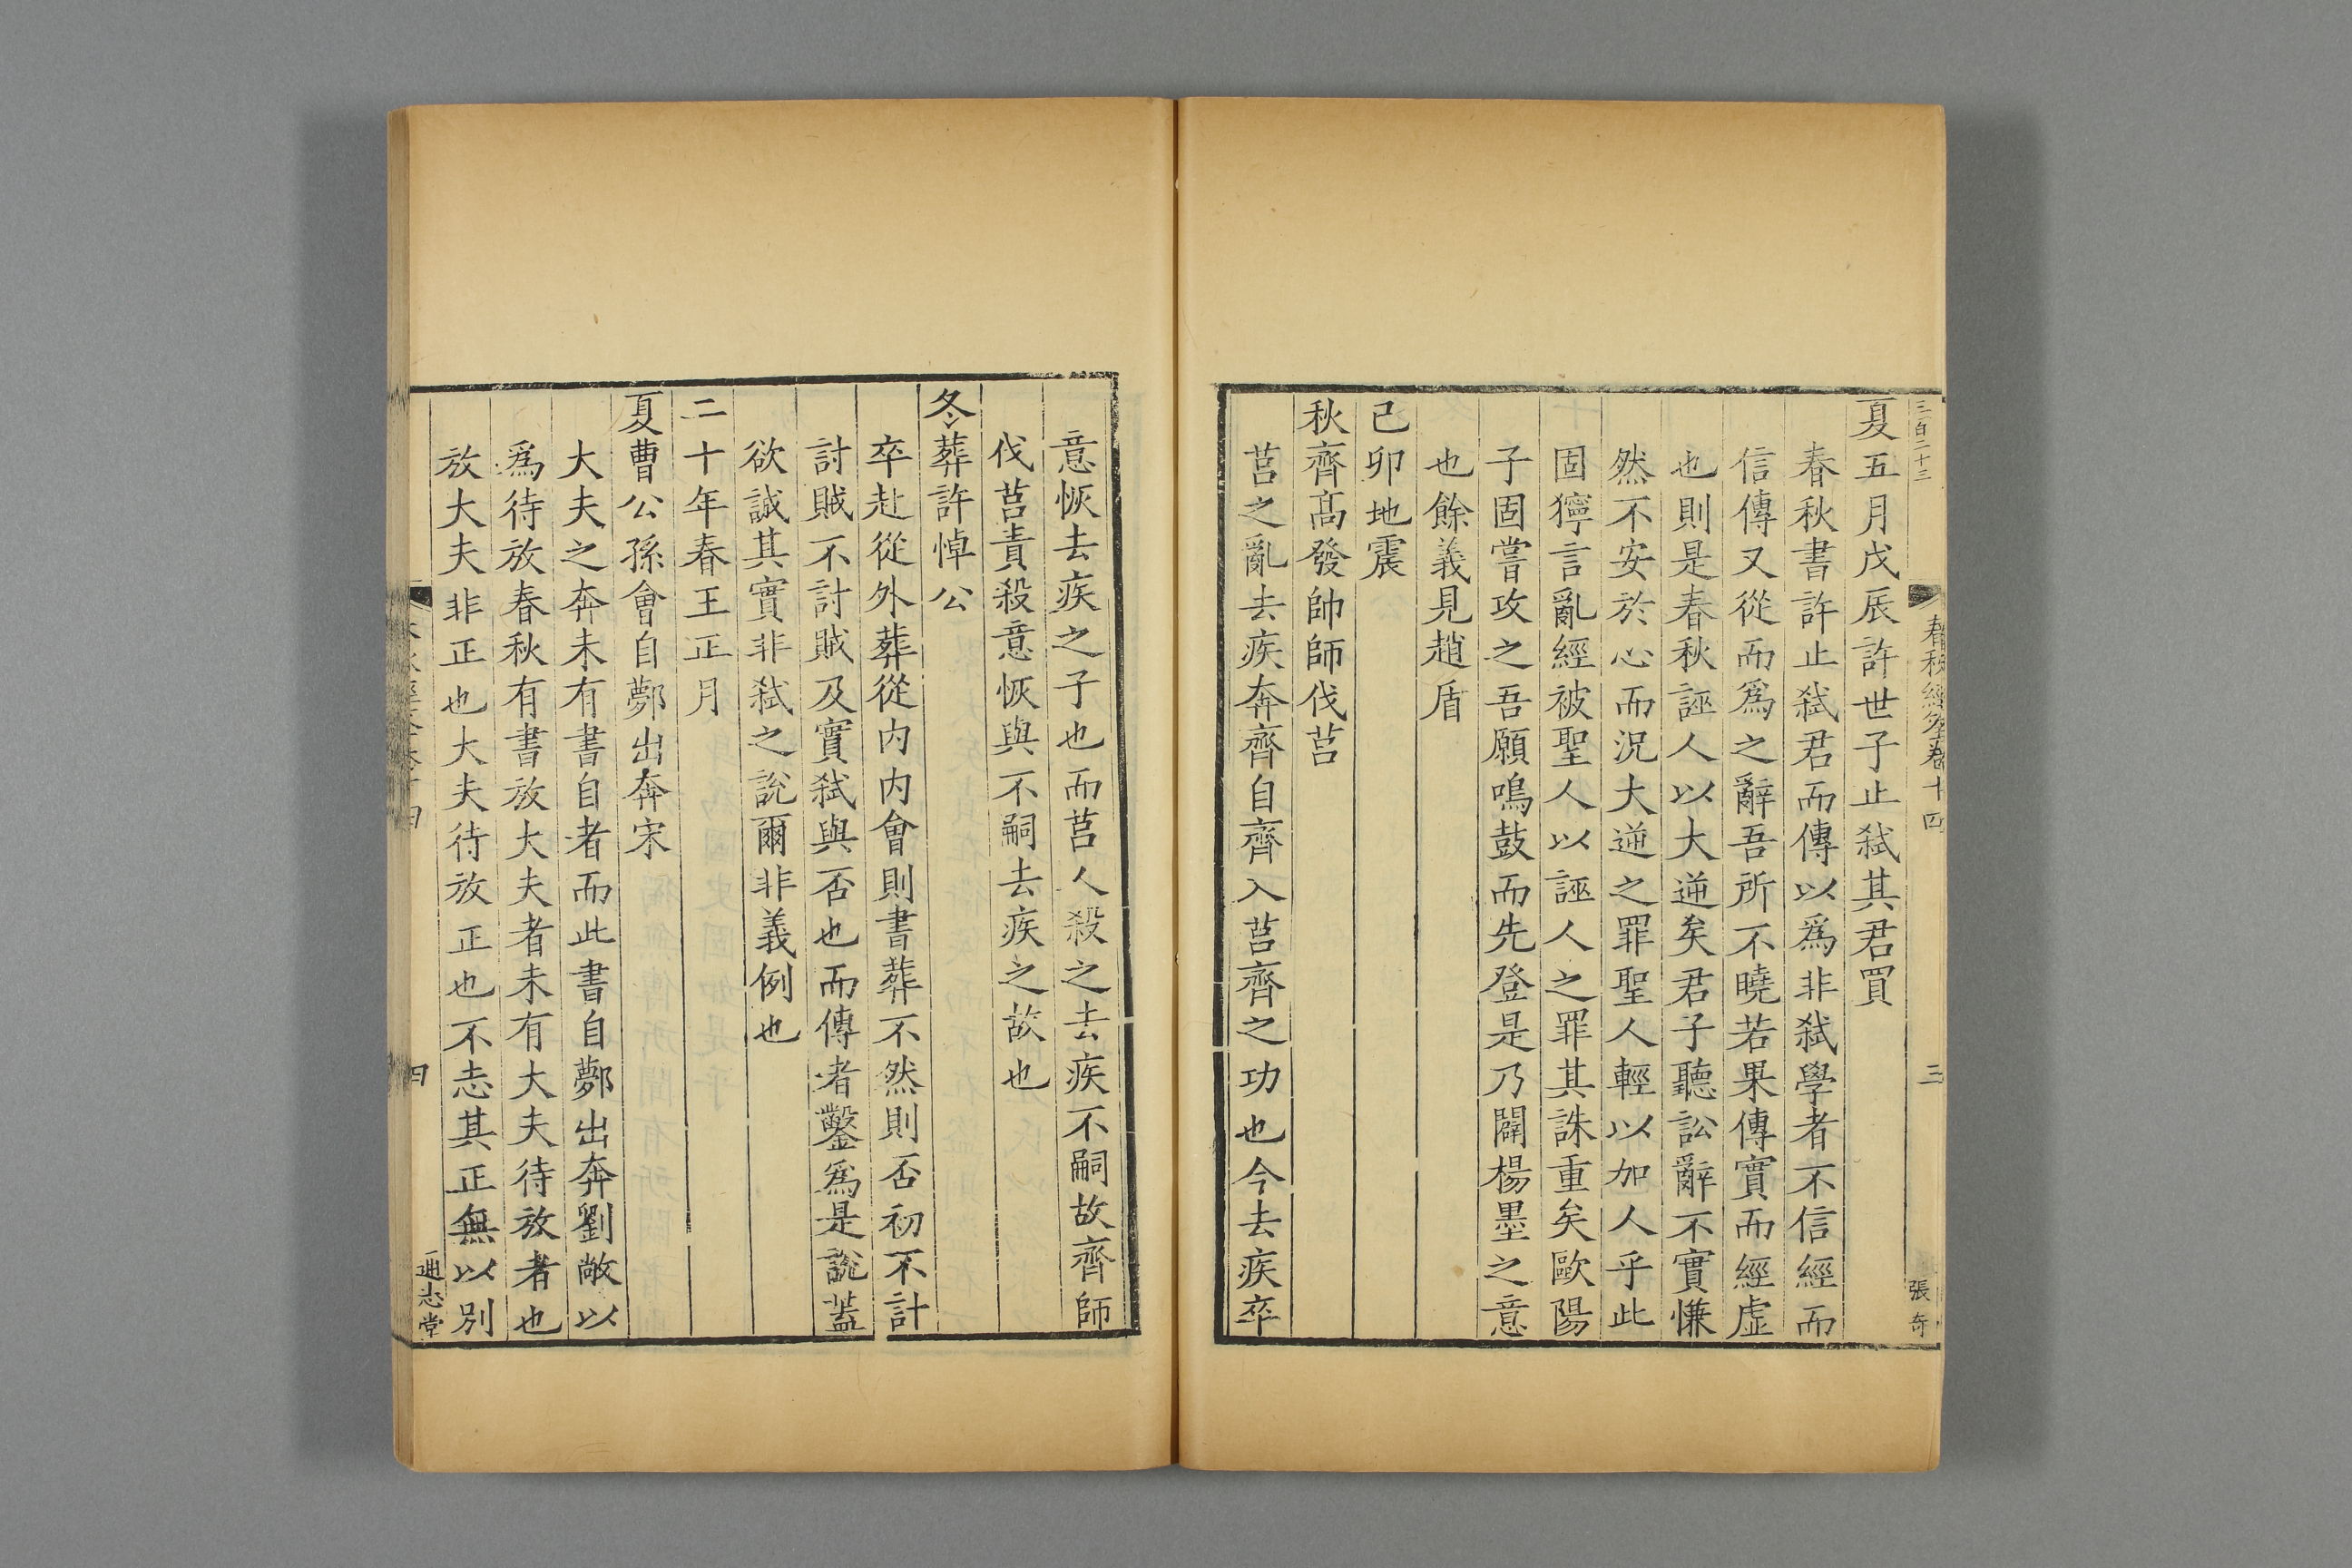 三百二十三
春秋經筌卷十四
三
張奇
夏五月戊辰許世子止弑其君買
春秋書許止弑君而傳以爲非弑學者不信經而
信傳又從而爲之辭吾所不曉若果傳實而經虛
也則是春秋誣人以大逆矣君子聽訟辭不實慊
然不安於心而況大逆之罪聖人輕以加人乎此
固獰言亂經被聖人以誣人之罪其誅重矣歐陽
子固嘗攻之吾願鳴鼓而先登是乃闢楊墨之意
也餘義見趙盾
己卯地震
秋齊髙發帥師伐莒
莒之亂去疾奔齊自齊入莒齊之功也今去疾卒
意恢去疾之子也而莒人殺之去疾不嗣故齊師
伐莒責殺意恢與不嗣去疾之故也
冬葬許悼公
卒赴從外葬從内内會則書葬不然則否初不計
討賊不討賊及實弑與否也而傳者鑿爲是說蓋
欲誠其實非弑之說爾非義例也
二十年春王正月
夏曹公孫會自鄸出奔宋
大夫之奔未有書自者而此書自鄸出奔劉敞以
爲待放春秋有書放大夫者未有大夫待放者也
放大夫非正也大夫待放正也不志其正無以別
四
通志堂